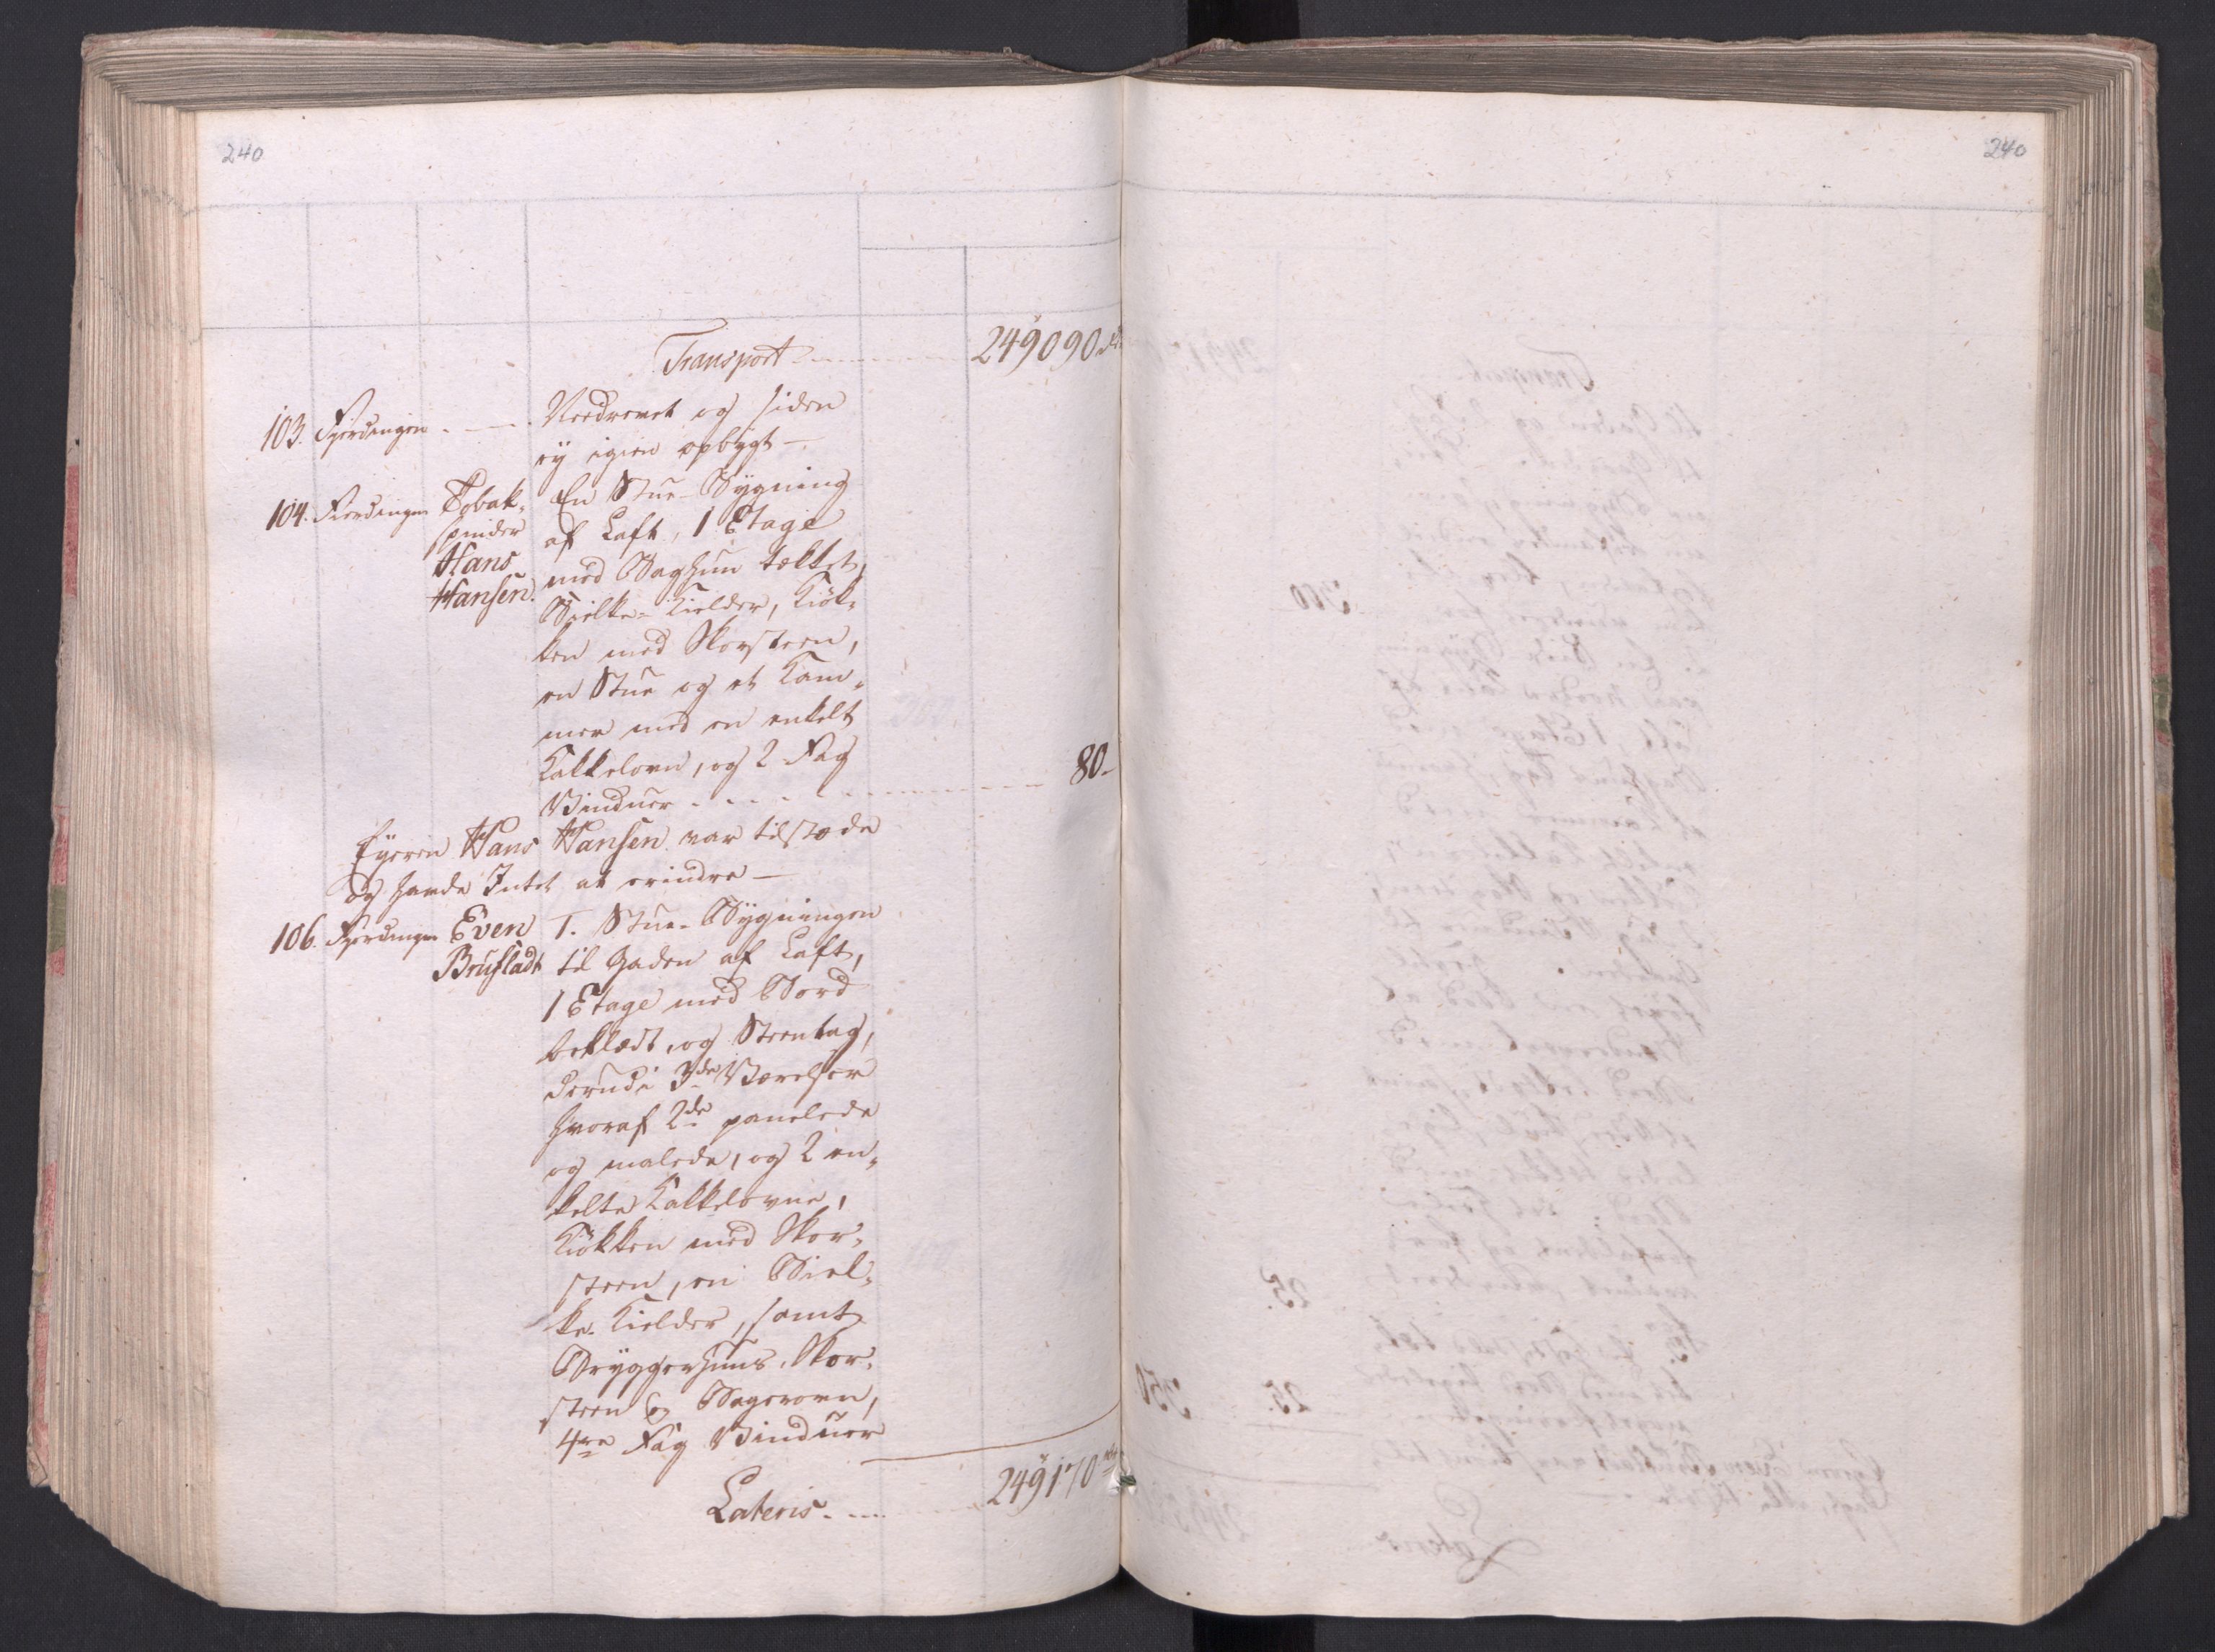 240
240
Transport - - - 249090 rd
103. Fjerdingen - - - Needrevet og siden
ey igien opbygt -
104. Fierdingen Tobak-
spinder
Hans
Hansen.
En Stue-Bygning
af Laft, 1 Etage
med Baghun tækket,
Bielke-Kielder, Kiök-
ken med Skorsteen,
en Stue og et Kam-
mer med en enkelt
Kakkelovn, og 2 Fag
Vinduer - - - - 80-
Eyeren Hans Hansen var tilstæde
og havde Intet at erindre -
106. Fjerdingen Even
Brufladt
1. Stue-Bygningen
til Gaden af Laft,
1 Etage med Bord
beklædt, og Steentag,
derudi 3de Værelser
hvoraf 2de panelede
og malede, og 2 en-
kelte Kakkelovne,
Kiökken med Skor-
steen, en Biel-
ke Kielder, samt
Bryggerhuus, Skor-
steen og Bagerovn,
4re Fag Vinduer
Lateris - - - 249170 rd